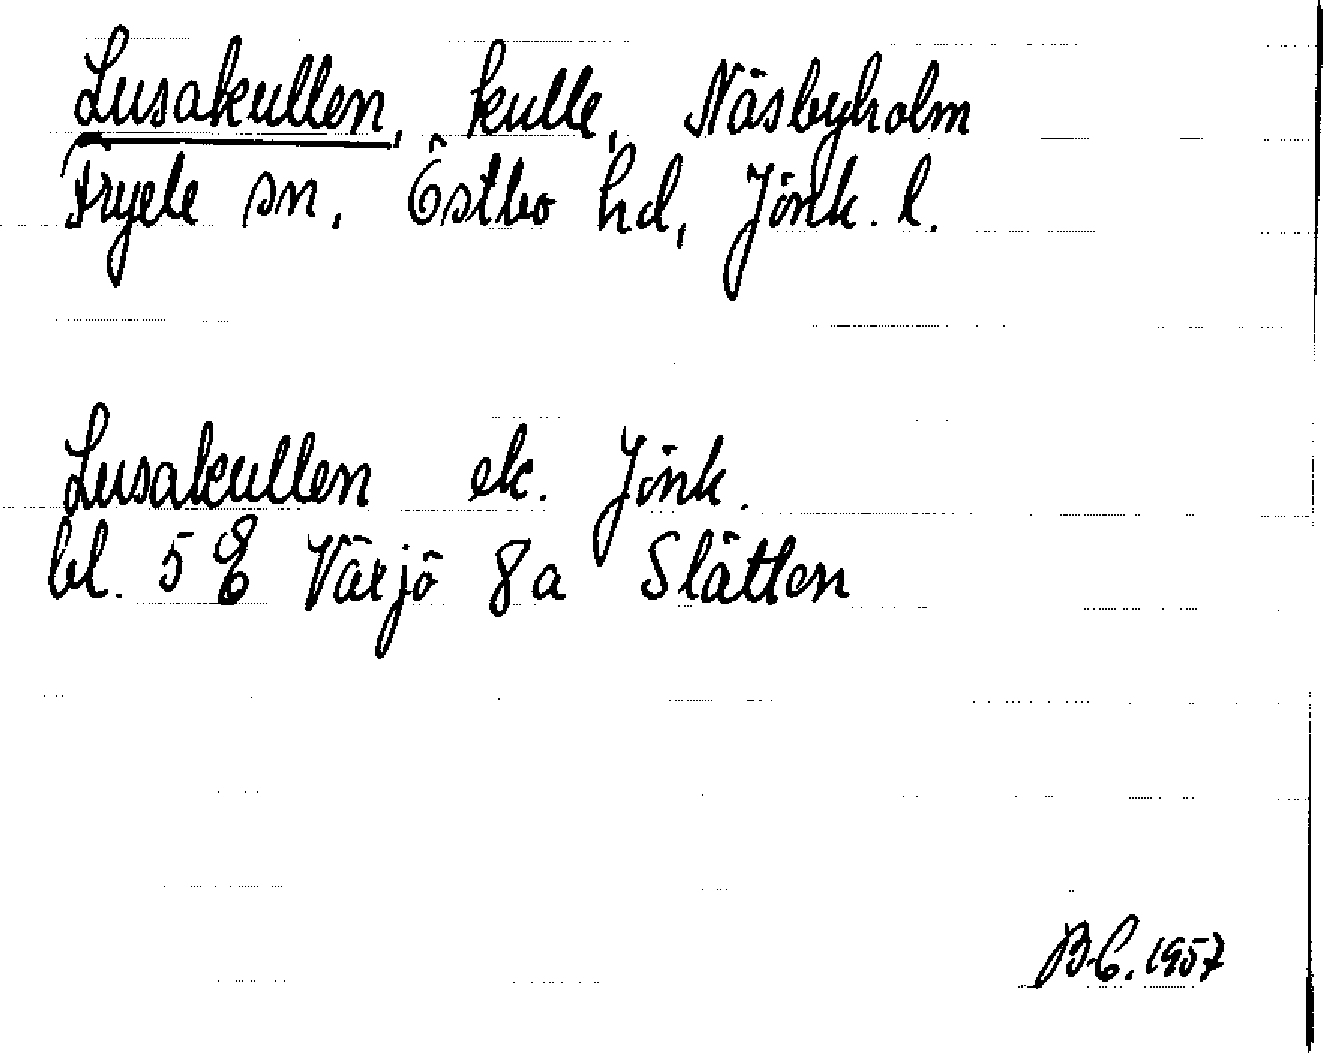 Lusakullen, kulle, Näsbyholm
Fryele sn. Östbo hd, Jönk. l.
Lusakullen ek. Jönk.
bl. 5 E Växjö 8a Slätten
B.C. 1957